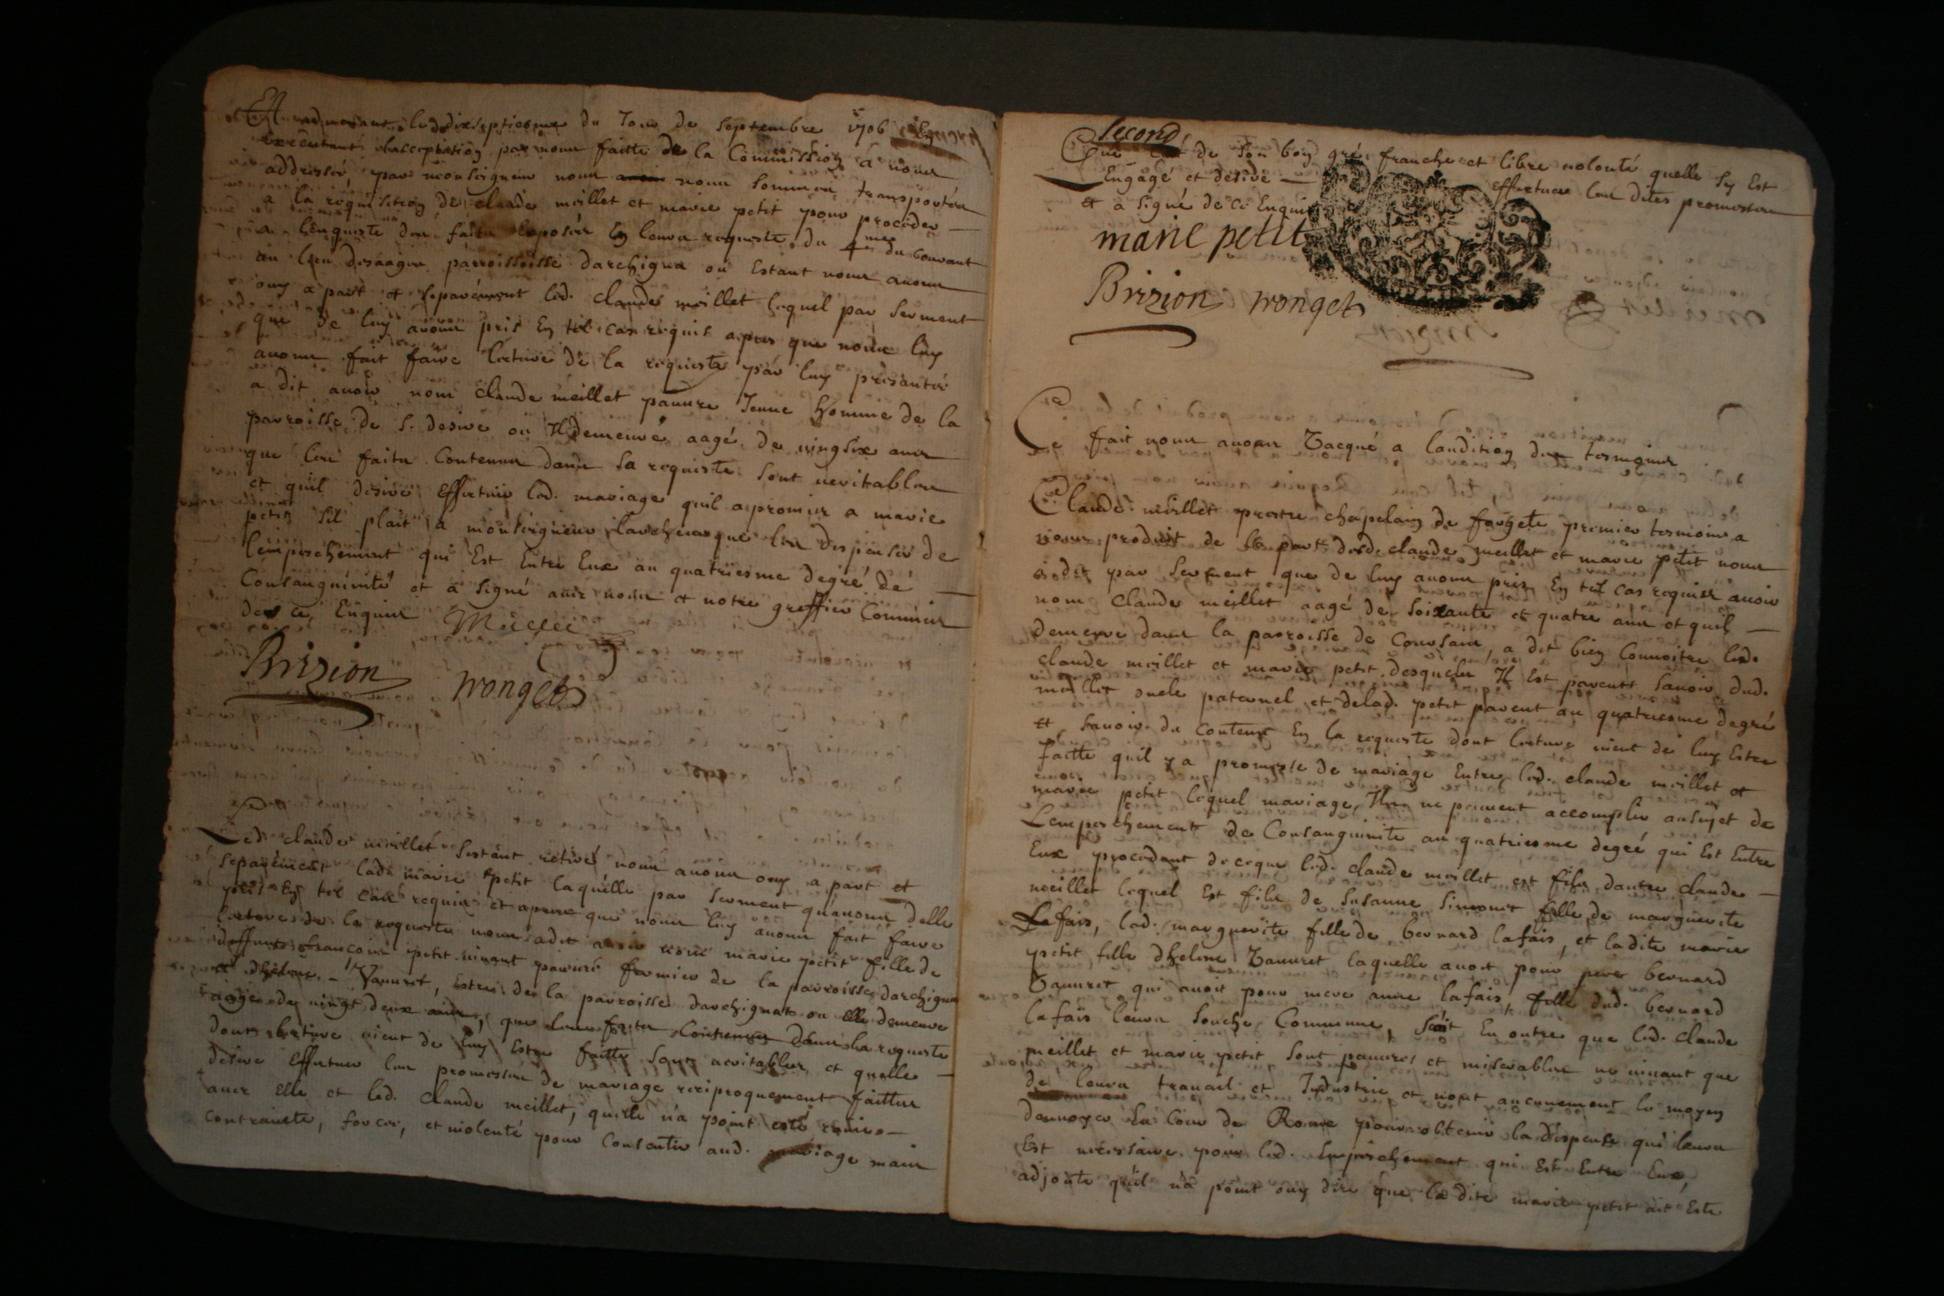 Et advenant le dixseptiesme du Jour de Septembre 1706 En
Exécutant lacceptation par nous faitte de la Commission à nous
addressée par monseigneur nous nous sommes transportés
a la requisition de claude meillet et marie petit pour proceder
a lenqueste des faits exposés En leur requeste du 4me du courant
au lieu parroissoisse darchigna où Estant nous avons
ouy a part et separément led. claude meillet lequel par serment
que de luy avons pris En tel cas requis apres que nous luy
avons fait faire lecture de la requeste par luy présantée
a dit avoir nom claude meillet pauvre Jeune homme de la
parroisse de St. desire ou Il demeure aagé de vingsix ans
que les faits contenus dans sa requeste sont veritables
et quil desire Effectuer led. mariage quil a promis a marie
petit sil plait a monseigneur larchevesque les dispenser de
lempeschement qui Est Entre Eux au quatriesme degré de
Consanguinité et a signé avec nous et notre greffier Commis
de ce Enquis Meillet
Brizion wonget
Led. claude meillet sestant retiré nous avons ouy a part et
separément lade. marie petit laquelle par serment quavons delle
pris En tel cas requis et apres que nous luy avons fait faire
lecture de la requeste nous a dit avoir nom marie petit fille de
deffunt francois petit vivant pauvre fermier de la parroisse darchigna
et dheleine Vauvret, de la parroisse darchignat ou elle demeure
aagée de vingt deux ans, que les faits Contenus dans la requeste
dont lecture vient de luy Estre faitte sont veritables et quelle
desire Effectuer les promesses de mariage reciproquement faittes
avec elle et led. claude meillet, quelle na point esté
contrainte, forcée, et violenté pour Consentir aud. mariage mais
second
Que cest de son bon gré franche et libre volonté quelle sy Est
Engagé et desire effectuer les dites promesses
et a signé de ce Enquis
marie petit
Brizion wonget
Ce fait nous avons Vacqué a laudition des tesmoins
Claude meillet prestre chapelain de fougete premier tesmoins a
nous produit de la part desd. claude meillet et marie petit nous
a dit par serment que de luy avons pris En tel cas requis avoir
nom Claude meillet aagé de soixante et quatre ans et quil
demeure dans la parroisse de Coursain, a dit bien Connoitre led.
claude meillet et marie petit desquels Il Est parent savoir dud.
meillet oncle paternel et delad. petit parent au quatriesme degré
et savoir du contenu En la requeste dont lecture vient de luy Estre
faitte quil y a promesse de mariage Entre led. claude meillet et
marie petit lequel mariage Ils ne peuvent accomplir ausujet de
Lempeschement de Consanguinite au quatriesme degré qui Est Entre
Eux procedant de ceque led. claude meillet est fils dautre claude
meillet lequel Est fils de Susanne Simonet fille de marguerite
Lafais, lad. marguerite fille de bernard lafais, et ladite marie
petit fille dheleine Vauvret laquelle avoit pour pere bernard
Vauvret qui avoit pour mere anne lafais, fille dud. bernard
lafais leurs souche Commune, scait En outre que led. claude
meillet et marie petit sont pauvres et miserables ne vivant que
de leurs travail et Industrie et nont aucunement le moyen
denvoyer En Cour de Rome pour obtenir la dispense qui leurs
Est necessaire pour led. Empeschement qui Est Entre Eux,
adjoute quil na point ouy dire que la dite marie petit ait Esté